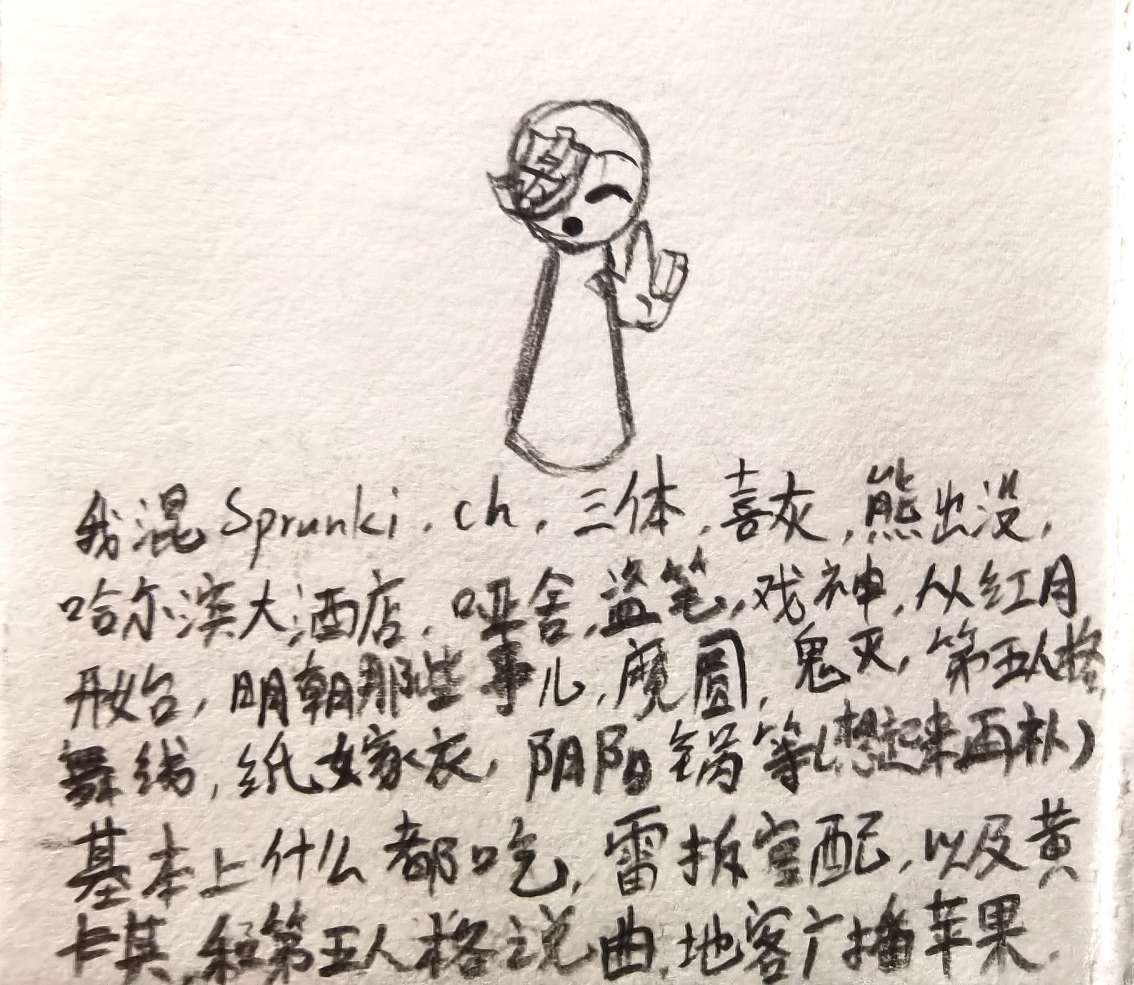 我混Sprunki.ch,三体,喜灰,熊出没,
哈尔滨大酒店,哑舍,盗笔,戏神,从红月
开始,明朝那些事儿,魔圆,鬼灭,第五人格,
舞线,纸嫁衣,阴阳锅等(想起来再补)
基本上什么都吃,雷拆官配,以及黄
卡其,和第五人格之说曲,地客广播苹果.